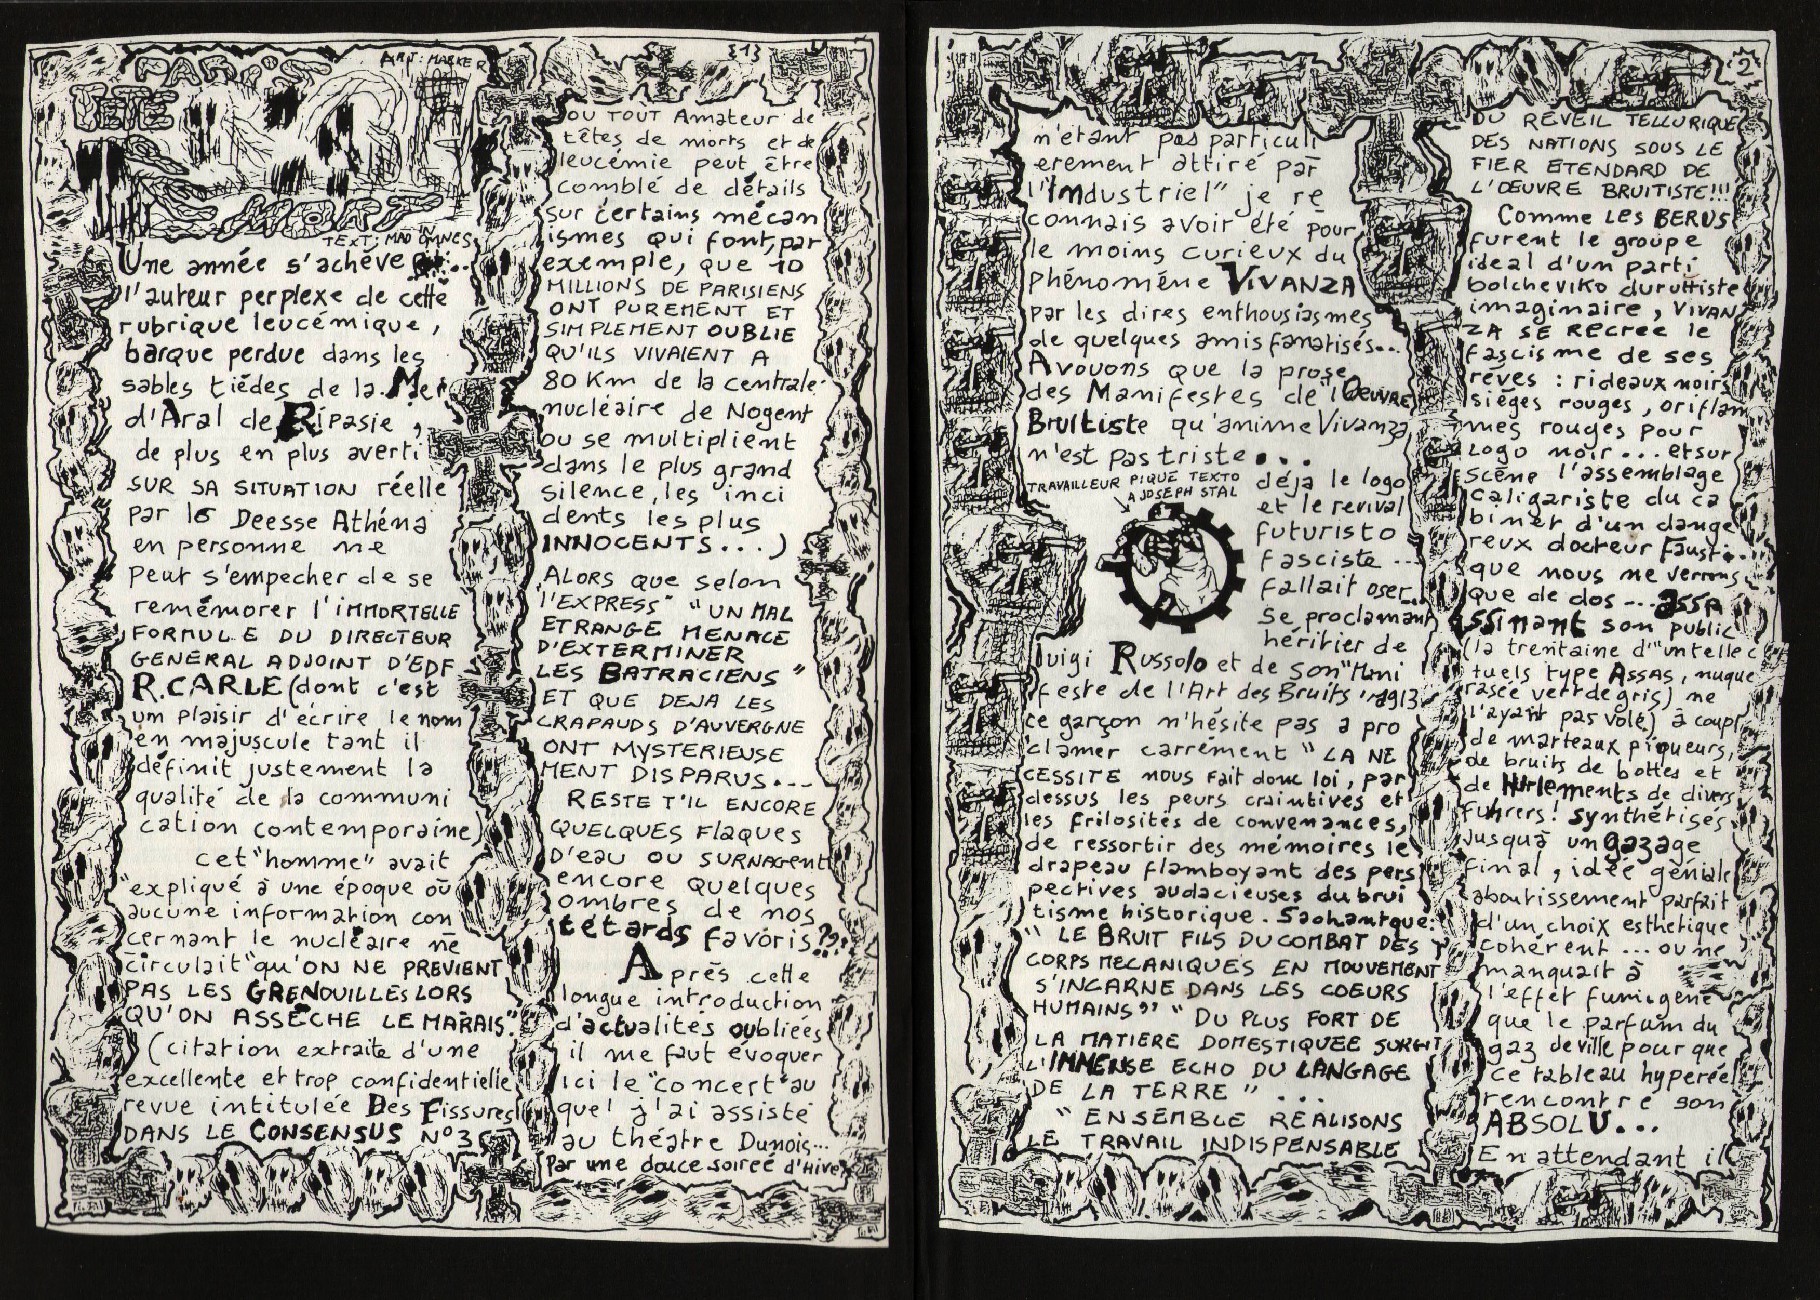 PARIS
TETE
ART: MARKER
MORT
TEXT: MAD IN OMNES
Une année s'achève ...
l'auteur perplexe de cette
rubrique leucémique,
barque perdue dans les
sables tiédes de la Mer
d'Aral de Ripasie,
de plus en plus averti
SUR SA SITUATION réelle
par la Deesse Athéna
en personne ne
peut s'empecher de se
remémorer l'IMMORTELLE
FORMULE DU DIRECTEUR
GENERAL ADJOINT D'EDF
R.CARLE (dont c'est
un plaisir d'écrire le nom
en majuscule tant il
définit justement la
qualité de la communi
cation contemporaine)
cet "homme" avait
expliqué à une époque où
aucune information con
cernant le nucléaire ne
circulait "qu'ON NE PREVIENT
PAS LES GRENOUILLES LORS
QU'ON ASSÈCHE LE MARAIS".
(citation extraite d'une
excellente et trop confidentielle
revue intitulée Des Fissures
DANS LE CONSENSUS N°3
{1}
OU TOUT Amateur de
têtes de morts et de
leucémie peut être
comblé de détails
sur certains mécan
ismes qui font, par
exemple, que 10
MILLIONS DE PARISIENS
ONT PUREMENT ET
SIMPLEMENT OUBLIE
QU'ILS VIVAIENT A
80 Km de la centrale
nucléaire de Nogent
ou se multiplient
dans le plus grand
silence, les inci
dents les plus
INNOCENTS...)
ALORS QUE selon
l'EXPRESS" "UN MAL
ETRANGE MENACE
D'EXTERMINER
LES BATRACIENS"
ET QUE DEJA LES
CRAPAUDS D'AUVERGNE
ONT MYSTERIEUSE
MENT DISPARUS...
RESTE T'IL ENCORE
QUELQUES FLAQUES
D'eau OU SURNAGENT
encore quelques
ombres de nos
tétards favoris??
Après cette
longue introduction
d'actualités oubliées
il me faut évoquer
ici le "concert" au
quel j'ai assisté
au théâtre Dunois...
Par une douce soirée d'Hiver
n'étant pas particuli
erement attiré par
l'"Industriel" je re
connais avoir été pour
le moins curieux du
phénomène VIVANZA
par les dires enthousiasmes
de quelques amis fanatisés...
Avouons que la prose
des Manifestes de "l'Oeuvre
Bruitiste qu'anime Vivanza
n'est pas triste...
TRAVAILLEUR PIQUE TEXTO
A JOSEPH STAL
déja le logo
et le revival
futuristo
fasciste...
fallait oser...
Se proclamant
héritier de
Luigi Russolo et de son "Mani
feste de l'Art des Bruits" 1913
ce garçon n'hésite pas a pro
clamer carrément "LA NE
CESSITE nous fait donc loi, par
dessus les peurs craintives et
les frilosités de convenances,
de ressortir des mémoires le
drapeau flamboyant des pers
pectives audacieuses du brui
tisme historique. Sachant que:
"LE BRUIT FILS DU COMBAT DES
CORPS MECANIQUES EN MOUVEMENT
S'INCARNE DANS LES COEURS
HUMAINS" "DU PLUS FORT DE
LA MATIERE DOMESTIQUEE SURGIT
L'IMMENSE ECHO DU LANGAGE
DE LA TERRE"...
"ENSEMBLE REALISONS
LE TRAVAIL INDISPENSABLE
2
DU REVEIL TELLURIQUE
DES NATIONS SOUS LE
FIER ETENDARD DE
L'OEUVRE BRUITISTE!!!
Comme LES BERUS
furent le groupe
ideal d'un parti
bolcheviko duruttiste
imaginaire, VIVAN
ZA SE RECREE le
fascisme de ses
rêves: rideaux noirs
sièges rouges, oriflam
mes rouges pour
Logo noir... et sur
scène l'assemblage
caligariste du ca
binet d'un dange
reux docteur Faust...
que nous ne verrons
que de dos... assa
ssinant son public
(la trentaine d'"intellec
tuels type Assas, nuque
rasée vert de gris) ne
l'ayant pas volé) à coups
de marteaux piqueurs,
de bruits de bottes et
de Hurlements de divers
führers! synthétisés
jusqu'à un gazage
final, idée géniale
aboutissement parfait
d'un choix esthetique
cohérent... ou ne
manquait à
l'effet fumigène
que le parfum du
gaz de ville pour que
ce tableau hyperréel
rencontre son
ABSOLU...
En attendant il